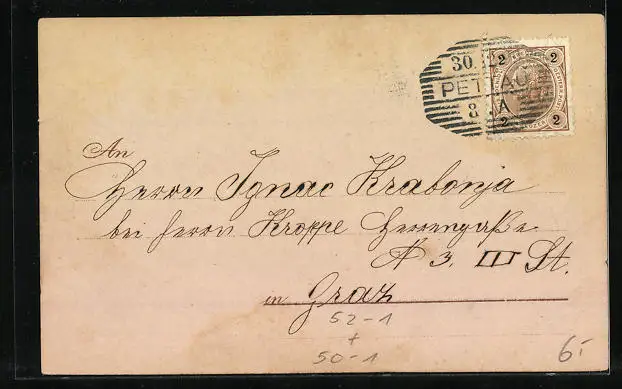 30.12
PETTAU
8 A
2 2
2 2
An
Herrn Ignac Krabonja
bei Herrn Kroppe Herrengaße
№ 3. III St.
in Graz
52-1
+
50-1
6.-